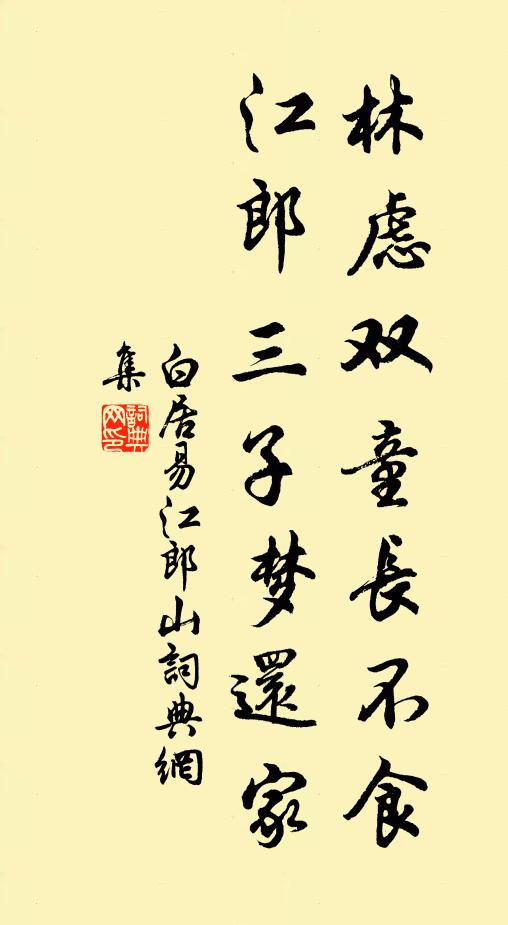 林慮双童長不食
江郎三子梦還家
白居易江郎山詞典網
集
詞典网印